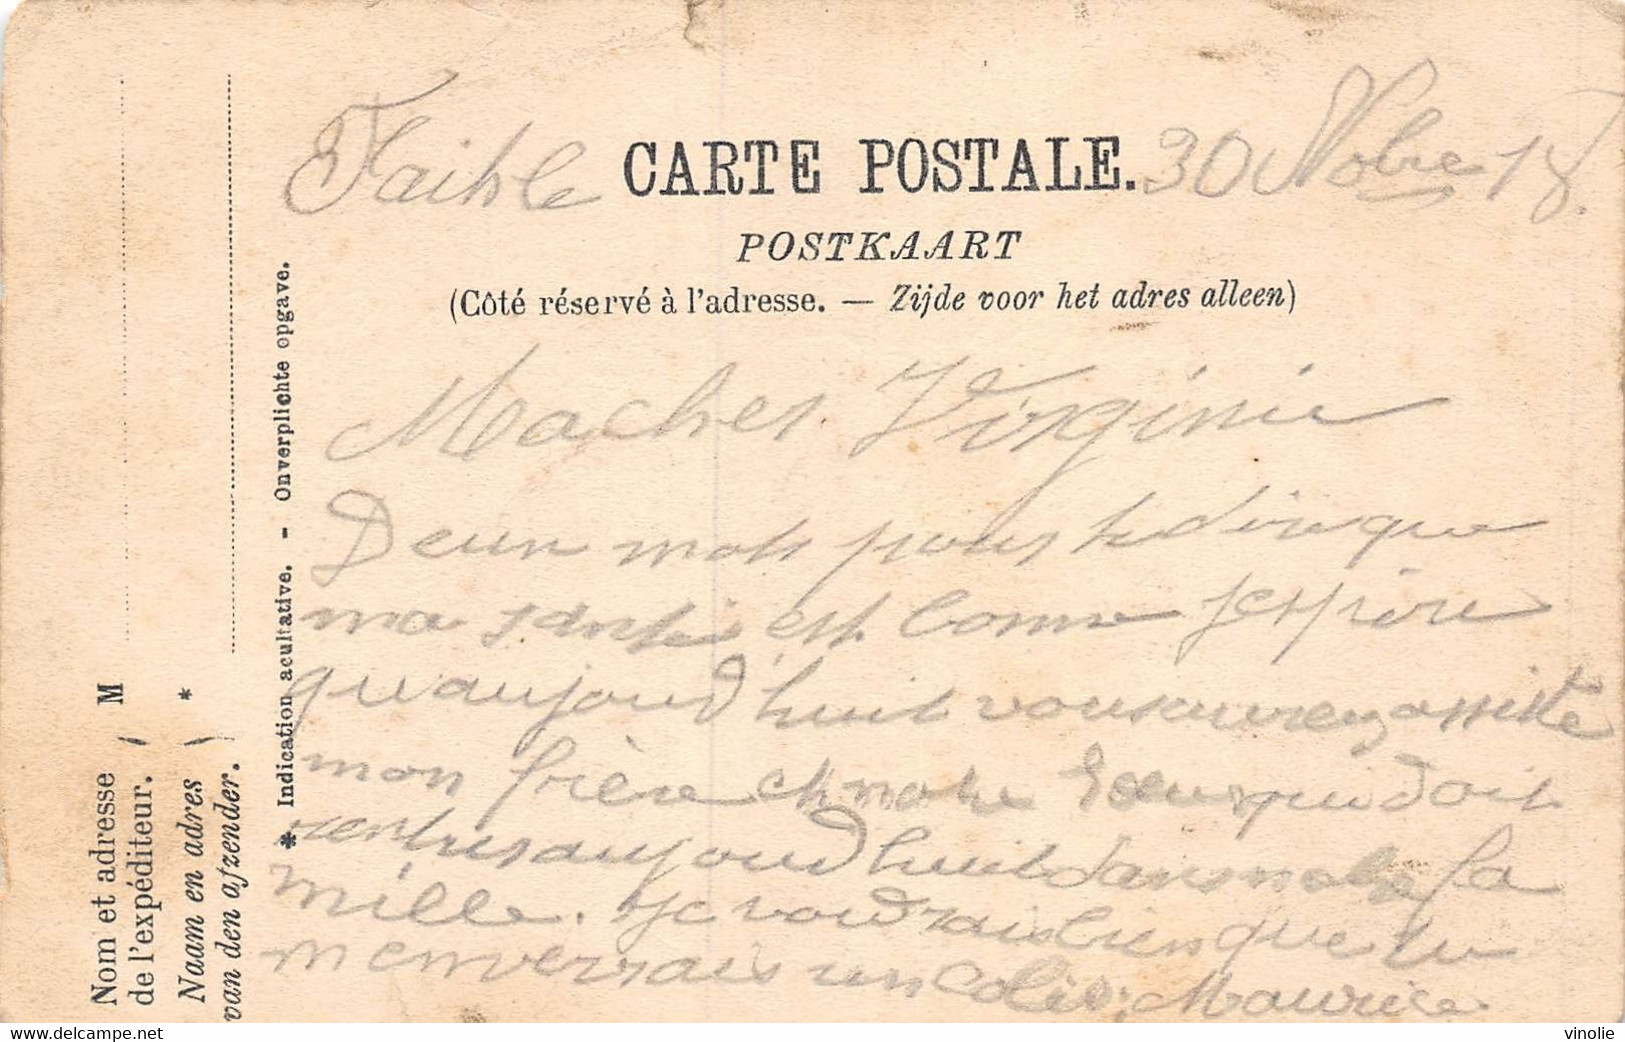 Faible CARTE POSTALE. 30 Nobre 18.
POSTKAART
(Côté réservé à l'adresse. — Zijde voor het adres alleen)
Ma cher Virginie
Deux mots pour te dire que
ma santé est bonne j espère
qu aujourd huit vous aurez assiste
mon frère et notre Sœur qui doit
rentrer aujourd huit dans notre fa
mille. Je voudrais bien que tu
m enverrais un colis. Maurice
* Indication acultative. - Onverplichte opgave.
Nom et adresse
de l'expéditeur. ( M
Naam en adres ) *
van den afzender.
vinolie